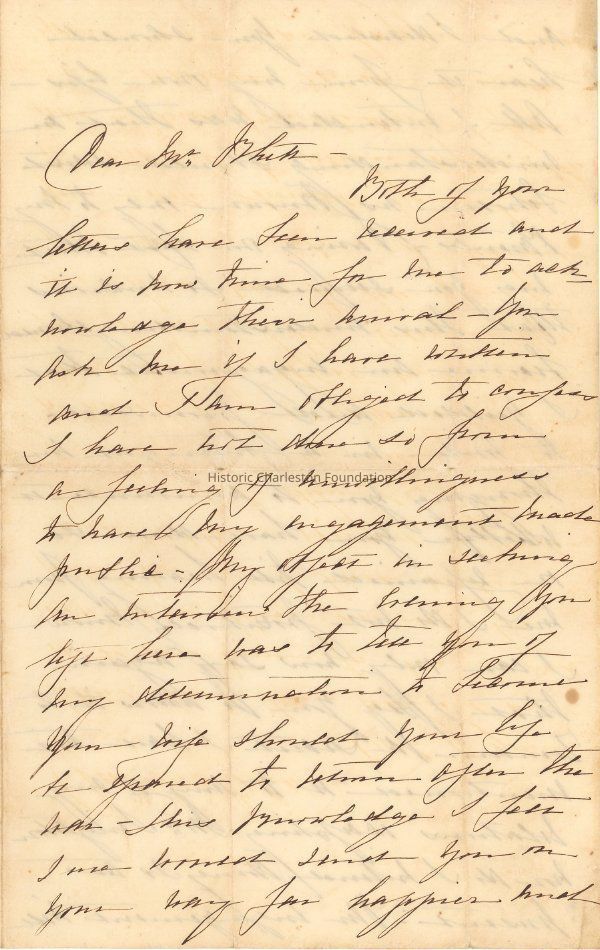 Dear Mr. Rhett —
Both of your
letters have been received and
it is now time for me to ack=
nowledge their arrival — You
ask me if I have written
and I am obliged to confess
I have not done so from
Historic Charleston Foundation
a feeling of unwillingness
to have my engagement made
public — My object in seeking
an interview the evening you
left here was to tell you of
my determination to become
your wife should your life
be spared to return after the
war — this knowledge I felt
sure would send you on
your way far happier and